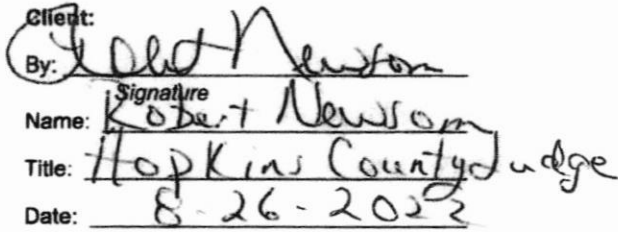 Client:
By: Robert Newsom
Signature
Name: Robert Newsom
Title: Hopkins County Judge
Date: 8-26-2022